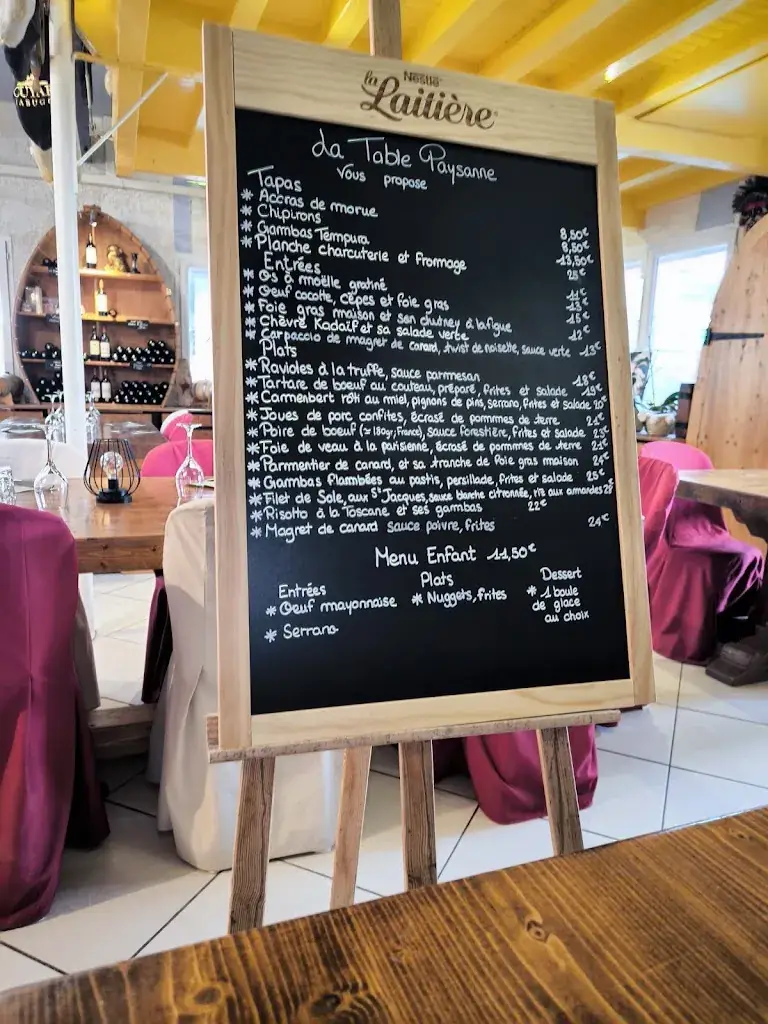 Nestlé
la Laitière
La Table Paysanne
Vous propose
Tapas
* Accras de morue 8,50€
* Chipirons 8,50€
* Gambas Tempura 13,50€
* Planche charcuterie et fromage 25€
Entrées
* Os à moëlle gratiné 11€
* Oeuf cocotte, cèpes et foie gras 13€
* Foie gras maison et son chutney à la figue 15€
* Chèvre Kadaïf et sa salade verte 12€
* Carpaccio de magret de canard, twist de noisette, sauce verte 13€
Plats
* Ravioles à la truffe, sauce parmesan 18€
* Tartare de boeuf au couteau, préparé, frites et salade 19€
* Camenbert rôti au miel, pignons de pins, serrano, frites et salade 20€
* Joues de porc confites, écrasé de pommes de terre 21€
* Poire de boeuf (≈ 180gr, France), sauce forestière, frites et salade 23€
* Foie de veau à la parisienne, écrasé de pommes de terre 21€
* Parmentier de canard, et sa tranche de foie gras maison 24€
* Gambas flambées au pastis, persillade, frites et salade 25€
* Filet de Sole, aux St Jacques, sauce blanche citronnée, riz aux amandes
* Risotto à la Toscane et ses gambas 22€
* Magret de canard sauce poivre, frites 24€
Menu Enfant 11,50€
Entrées Plats Dessert
* Oeuf mayonnaise * Nuggets, frites * 1 boule
de glace
* Serrano au choix